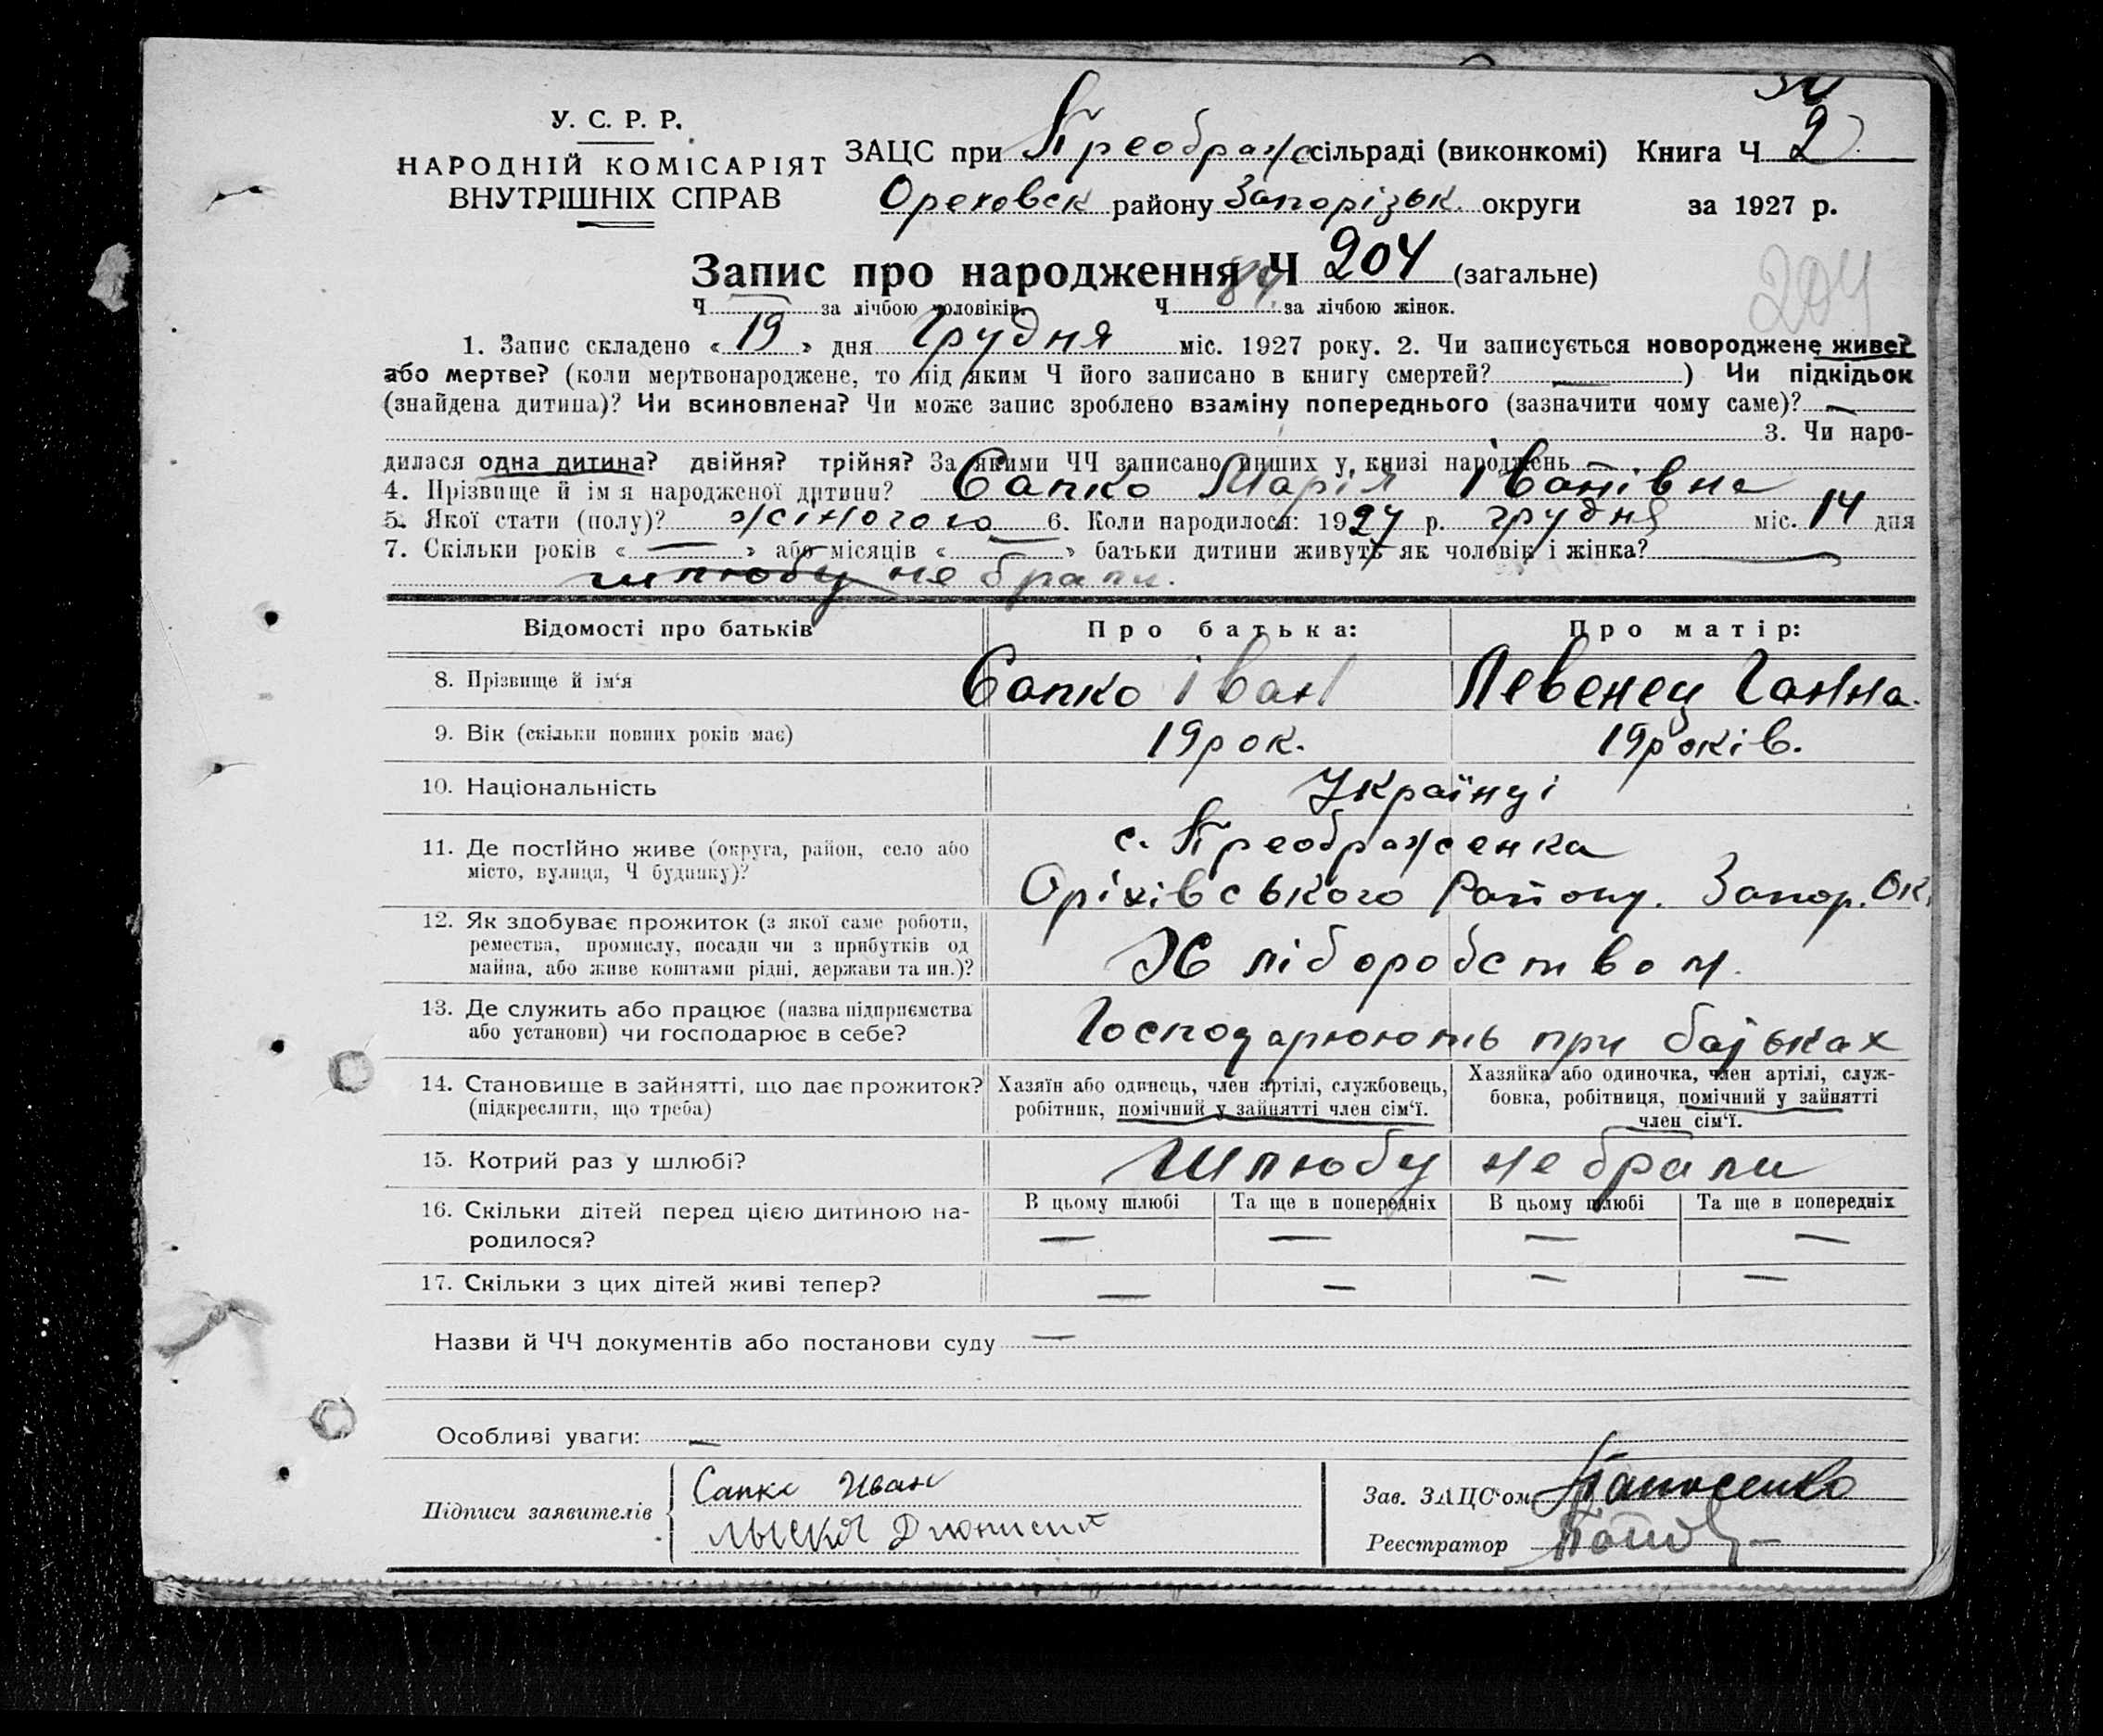 У. С. Р. Р.
НАРОДНІЙ КОМІСАРІЯТ
ВНУТРІШНІХ СПРАВ
ЗАЦС при Преображ сільраді (виконкомі) Книга Ч 2
Ореховск району Запорізьк. округи за 1927 р.
Запис про народження Ч 204 (загальне)
204
Ч — за лічбою чоловіків. Ч 84. за лічбою жінок.
1. Запис складено « 19 » дня Грудня міс. 1927 року. 2. Чи записується новороджене живе?
або мертве? (коли мертвонароджене, то під яким Ч його записано в книгу смертей? — ) Чи підкідьок
(знайдена дитина)? Чи всиновлена? Чи може запис зроблено взаміну попереднього (зазначити чому саме)? —
3. Чи наро-
дилася одна дитина? двійня? трійня? За якими ЧЧ записано инших у книзі народжень
4. Прізвище й ім я народженої дитини? Сапко Марія Іванівна
5. Якої стати (полу)? жіночого 6. Коли народилося: 1927 р. грудня міс. 14 дня
7. Скільки років « — » або місяців « — » батьки дитини живуть як чоловік і жінка? —
шлюбу не брали.
Відомості про батьків Про батька: Про матір:
8. Прізвище й ім'я Сапко Іван Левенец Ганна.
9. Вік (скільки повних років має) 19 рок. 19 років.
10. Національність Українці
11. Де постійно живе (округа, район, село або
місто, вулиця, Ч будинку)?
с. Преображенка
Оріхівського Району. Запор. Ок.
12. Як здобуває прожиток (з якої саме роботи,
ремества, промислу, посади чи з прибутків од
майна, або живе коштами рідні, держави та ин.)?
Хліборобством.
13. Де служить або працює (назва підприємства
або установи) чи господарює в себе?
Господарюють при батьках
14. Становище в зайнятті, що дає прожиток?
(підкреслити, що треба)
Хазяїн або одинець, член артілі, службовець,
робітник, помічний у зайнятті член сім'ї.
Хазяйка або одиночка, член артілі, служ-
бовка, робітниця, помічний у зайнятті
член сім'ї.
15. Котрий раз у шлюбі? Шлюбу не брали
16. Скільки дітей перед цією дитиною на-
родилося?
В цьому шлюбі Та ще в попередніх В цьому шлюбі Та ще в попередніх
— — — —
17. Скільки з цих дітей живі тепер? — — — —
Назви й ЧЧ документів або постанови суду —
Особливі уваги: —
Підписи заявителів
Сапко Иван
Дионисий
Зав. ЗАЦС'ом
Реєстратор